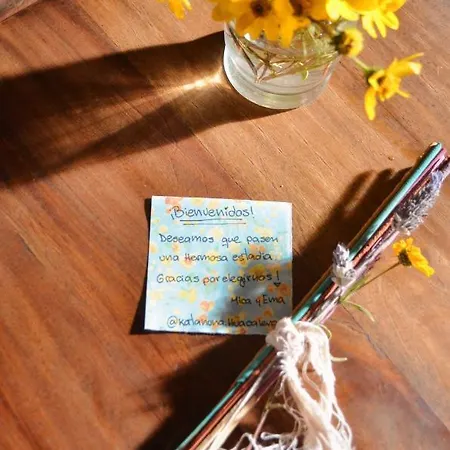 ¡Bienvenidos!
Deseamos que pasen
una Hermosa estadia.
Gracias por elegirnos!
Mica y Ema